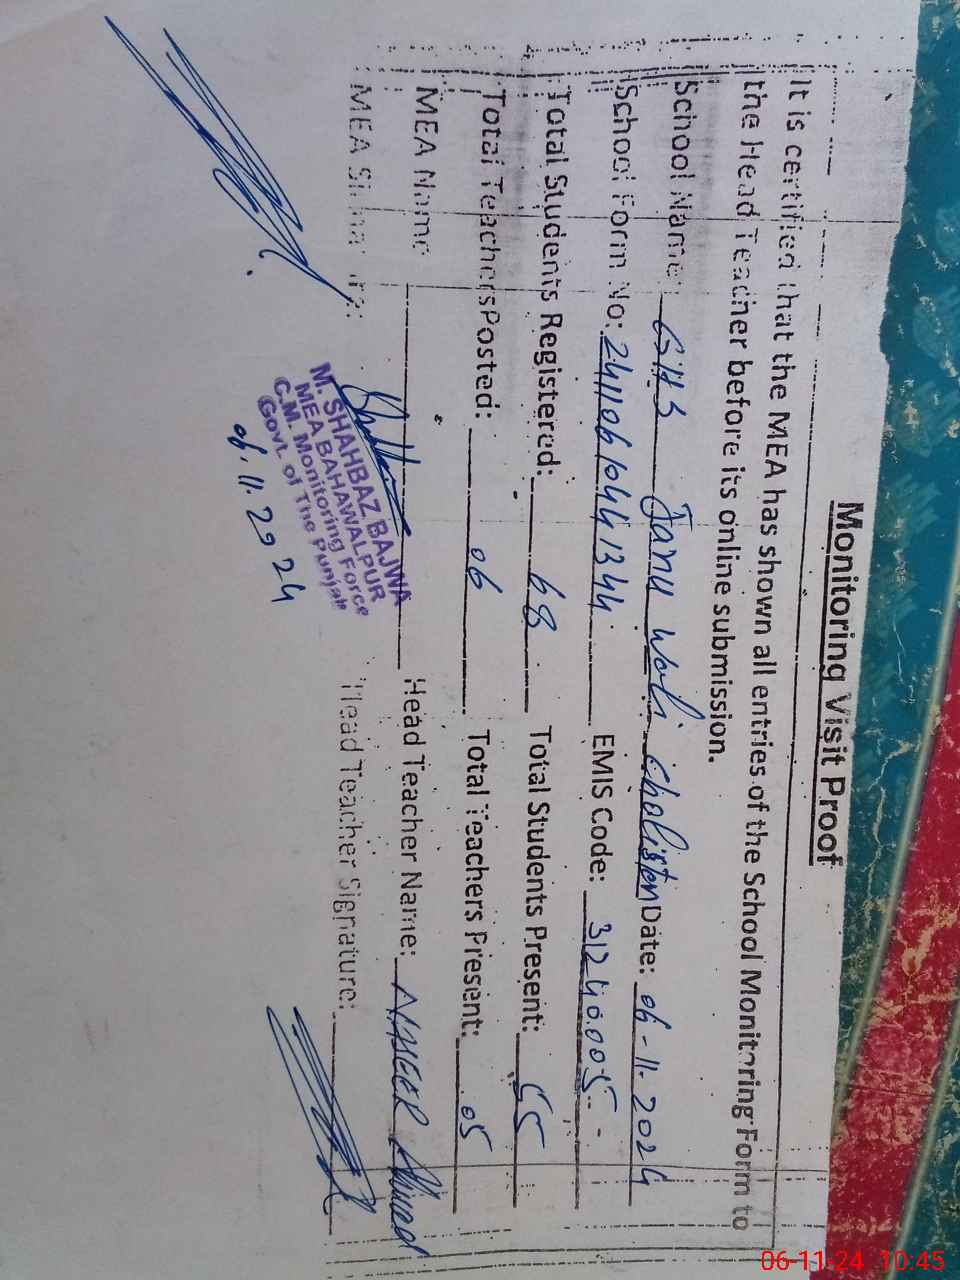 Monitoring Visit Proof
It is certified that the MEA has shown all entries of the School Monitoring Form to
the Head Teacher before its online submission.
School Name: Janu Wali cholistan Date: 06-11-2024
School Form No: 2411061044 1344 EMIS Code: 31240005
Total Students Registered: 68 Total Students Present: 55
Total Teachers Posted: 06 Total Teachers Present: 05
MEA Name Head Teacher Name: NASEER Ahmed
MEA Signature: Head Teacher Signature:
M. SHAHBAZ BAJWA
MEA BAHAWALPUR
C.M. Monitoring Force
Govt. of The Punjab
06.11.2024
06-11-24 10:45